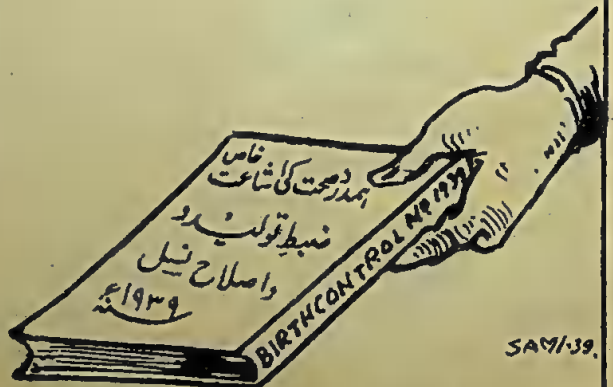 ہمدرد صحت کی اشاعت خاص
ضبطِ تولید و
واصلاح نسل
۱۹۳۹ء
BIRTHCONTROL No 1939
SAMI-39.